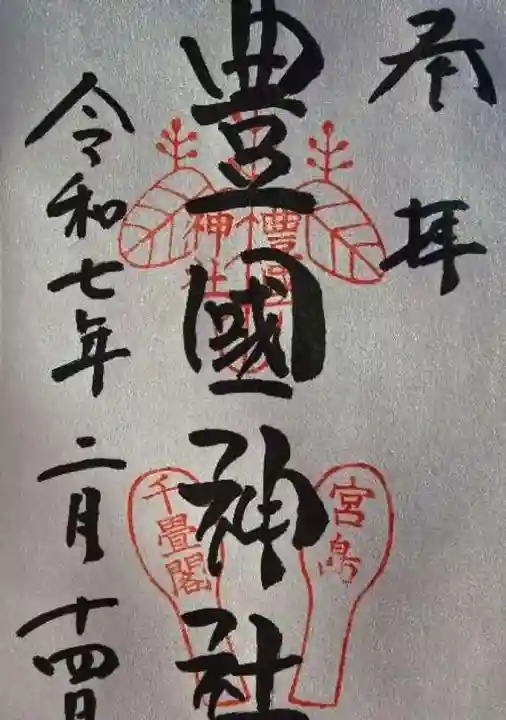 奉拝
豊國神社
令和七年二月十四日
豊國
神社
宮島
千畳閣